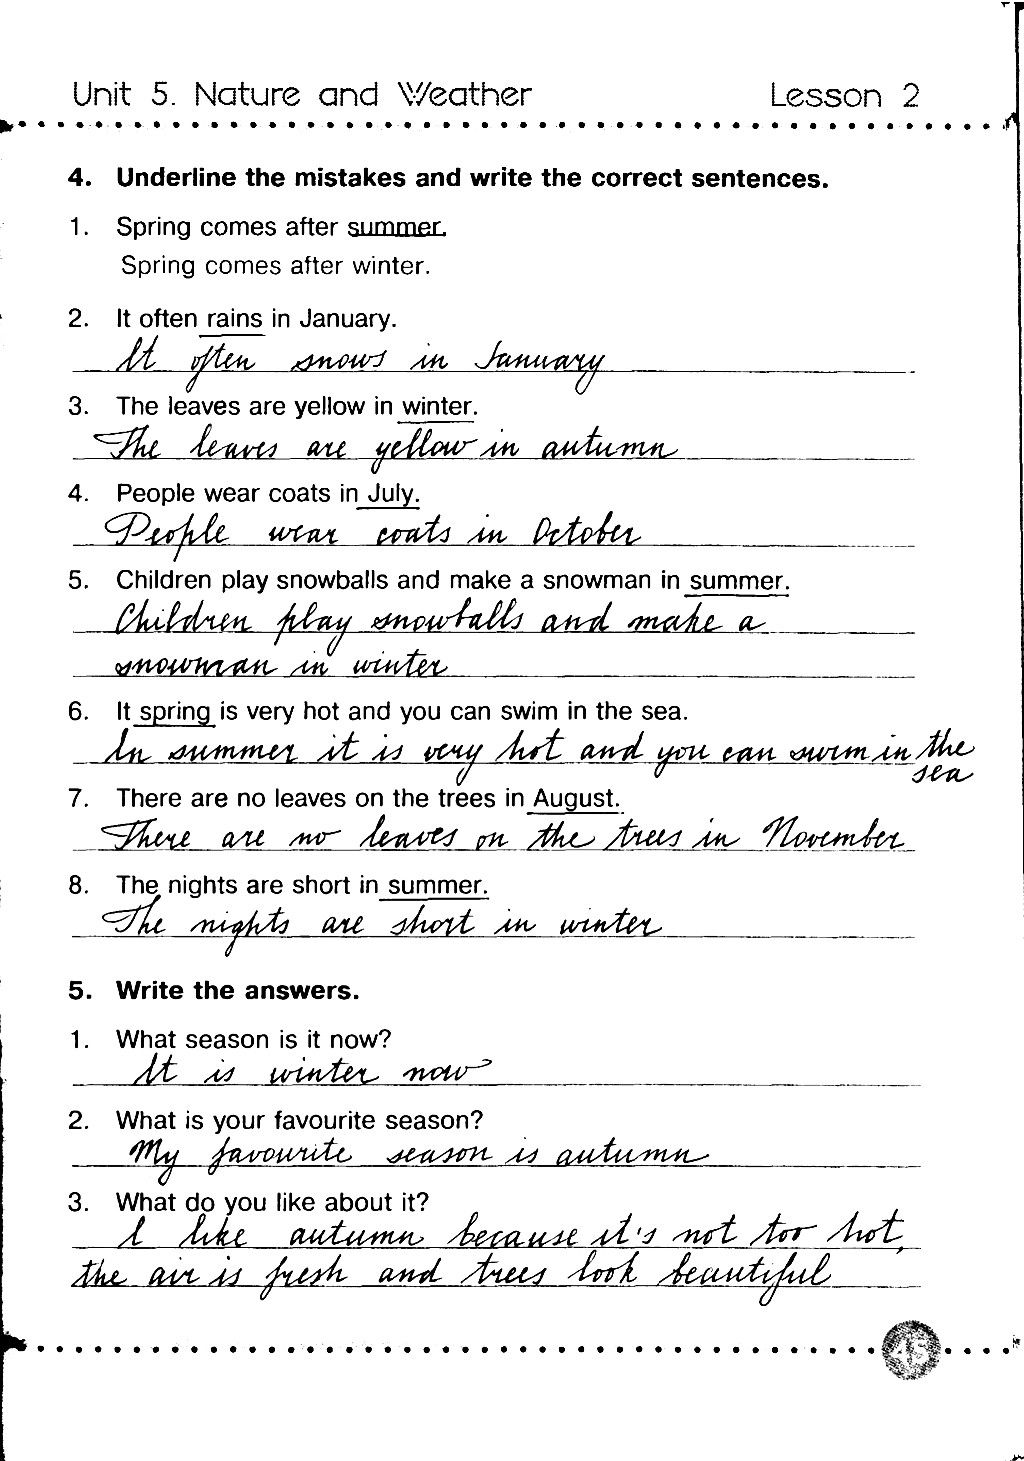 Unit 5. Nature and Weather Lesson 2
4. Underline the mistakes and write the correct sentences.
1. Spring comes after summer.
Spring comes after winter.
2. It often rains in January.
It often snows in January
3. The leaves are yellow in winter.
The leaves are yellow in autumn
4. People wear coats in July.
People wear coats in October
5. Children play snowballs and make a snowman in summer.
Children play snowballs and make a
snowman in winter
6. It spring is very hot and you can swim in the sea.
In summer it is very hot and you can swim in the
sea
7. There are no leaves on the trees in August.
There are no leaves on the trees in November
8. The nights are short in summer.
The nights are short in winter
5. Write the answers.
1. What season is it now?
It is winter now
2. What is your favourite season?
My favourite season is autumn
3. What do you like about it?
I like autumn because it's not too hot,
the air is fresh and trees look beautiful
45